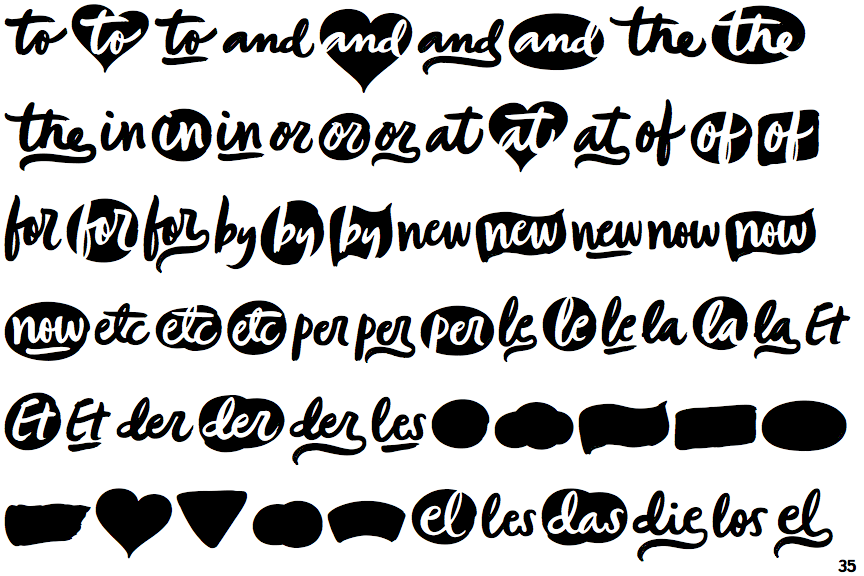 to to to and and and and the the
the in in in or or or at at at of of of
for for for by by by new new new now now
now etc etc etc per per per le le le la la la Et
Et Et der der der les
el les das die los el
35